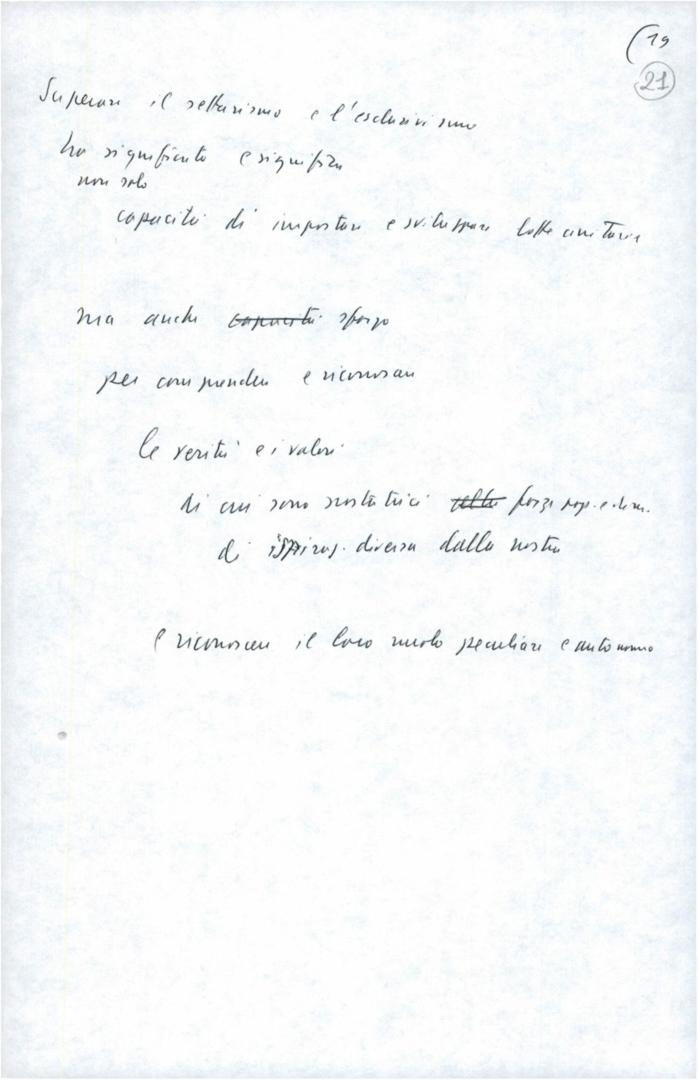 (19
21
Superare il settarismo e l'esclusivismo
ha significato e significa
non solo
capacità di impostare e sviluppare lotte unitarie
ma anche capacità sforzo
per comprendere e riconoscere
le verità e i valori
di cui sono portatrici altre forze pop. e dem.
di ispiraz. diversa dalla nostra
e riconoscere il loro ruolo peculiare e autonomo